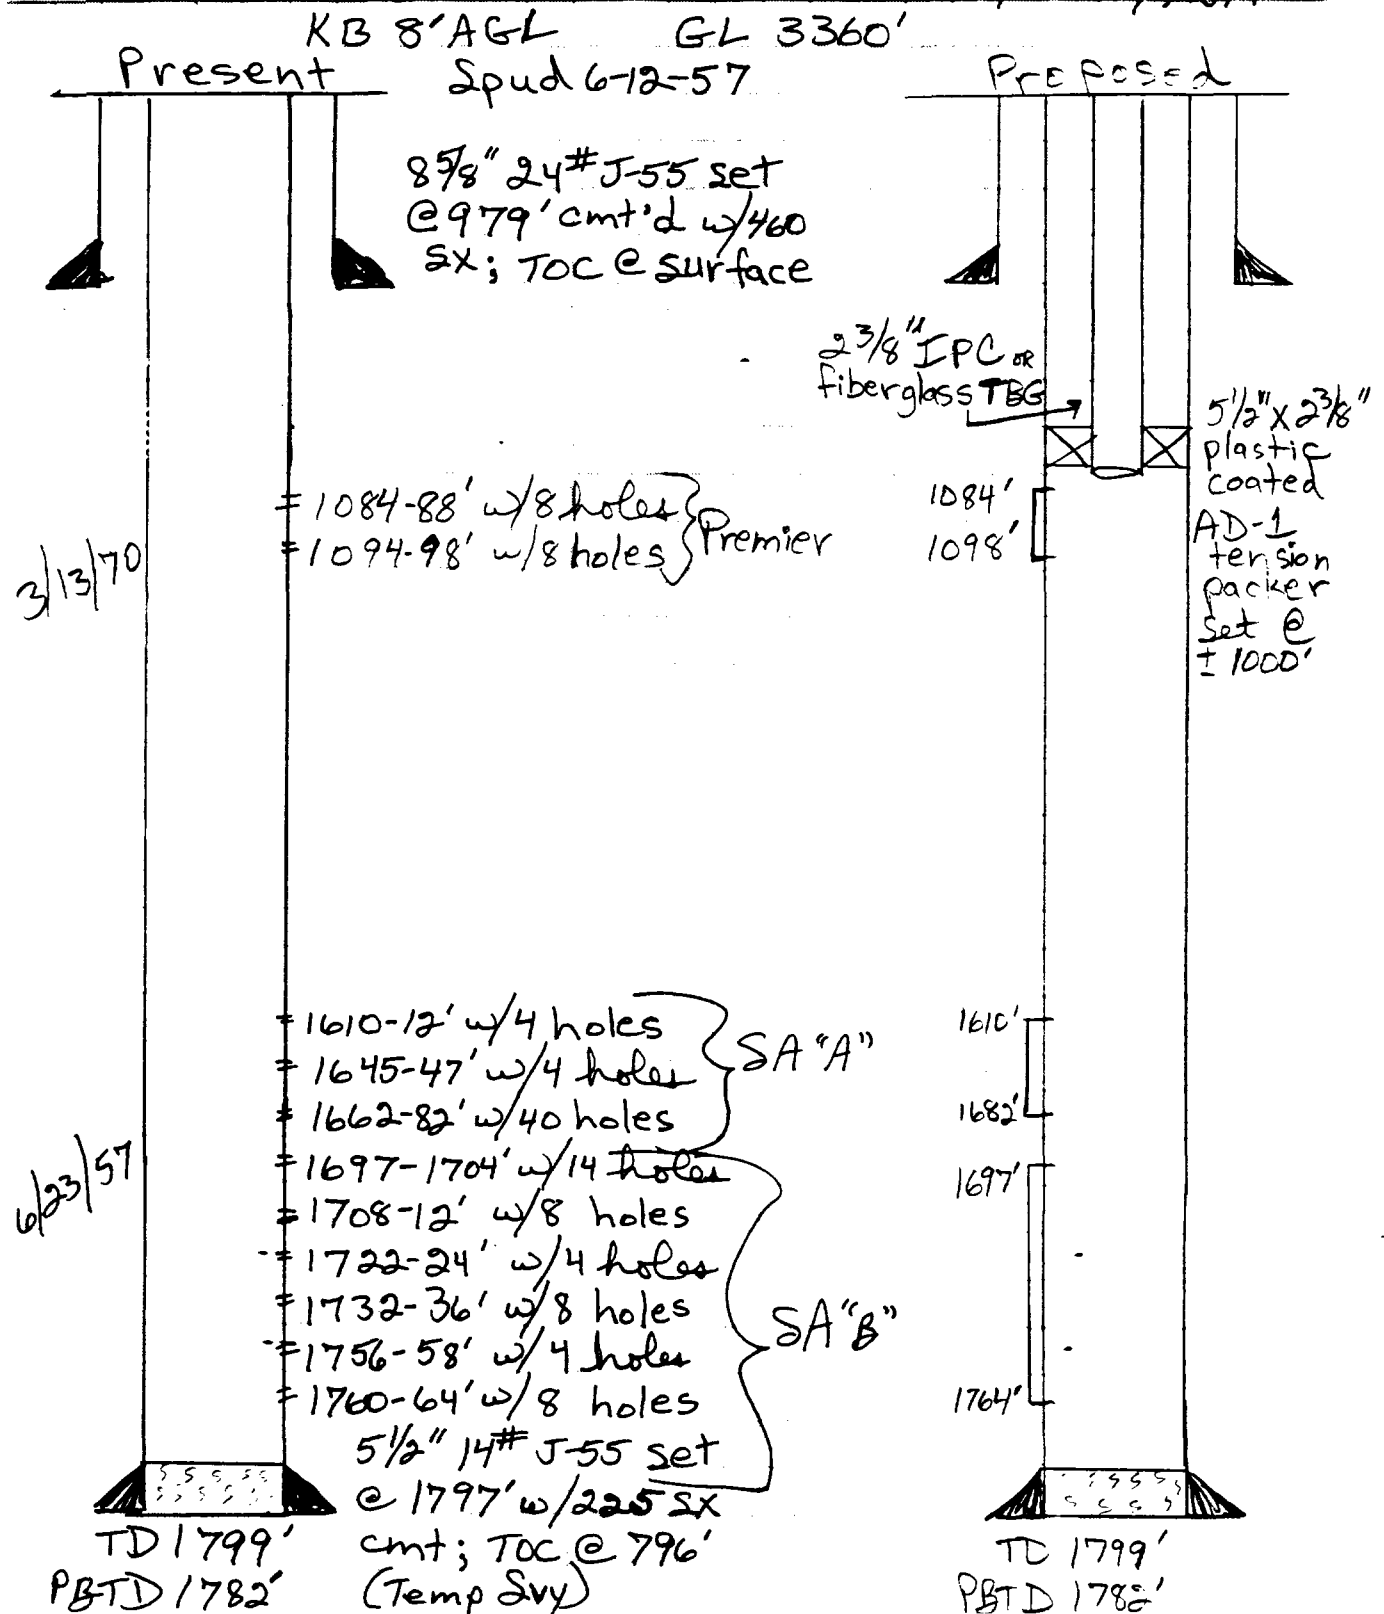 KB 8' AGL GL 3360'
Present
Spud 6-12-57
Proposed
8 5/8" 24# J-55 set
@ 979' cmt'd w/460
sx; TOC @ surface
2 3/8" IPC OR
fiberglass TBG
5 1/2" X 2 3/8"
plastic
coated
AD-1
tension
packer
set @
± 1000'
3/13/70
1084-88' w/8 holes
1094-98' w/8 holes
Premier
1084'
1098'
6/23/57
1610-12' w/4 holes
1645-47' w/4 holes
1662-82' w/40 holes
SA "A"
1697-1704' w/14 holes
1708-12' w/8 holes
1722-24' w/4 holes
1732-36' w/8 holes
1756-58' w/4 holes
1760-64' w/8 holes
SA "B"
1610'
1682'
1697'
1764'
5 1/2" 14# J-55 set
@ 1797' w/225 sx
cmt; TOC @ 796'
(Temp Svy)
TD 1799'
PBTD 1782'
TD 1799'
PBTD 1782'